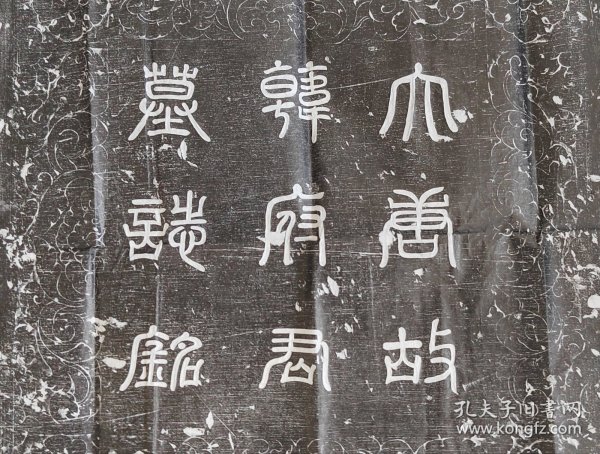 大唐故
韓府君
墓誌銘
孔夫子旧书网
www.kongfz.com